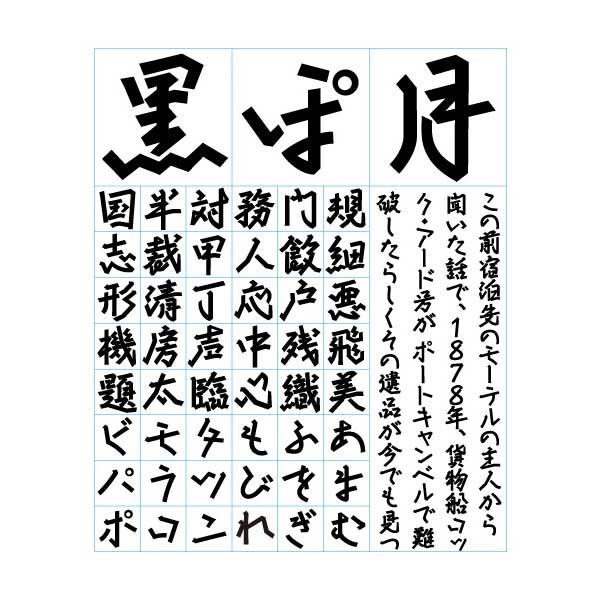 ぽ
黒
この前宿泊先のモーテルの主人から
聞いた話で、1878年、貨物船コッ
ク・アード号がポートキャンベルで難
破したらしくその遺品が今でも見つ
規細悪飛美あまむ
門飲戸残織ふをぎ
務人応中心もびれ
対甲丁声臨タツン
半裁清房太モラコ
国志形機題ビパポ